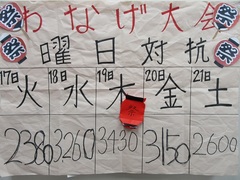 わなげ大会
曜日対抗
17日 18日 19日 20日 21日
火 水 木 金 土
2380 3260 3430 3150 2600